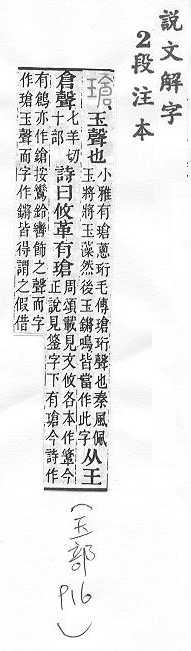 説文解字
2段注本
瑲 玉聲也 小雅有瑲蔥珩毛傳瑲珩聲也秦風佩
玉將將玉藻然後玉鏘鳴皆當作此字 从王
倉聲 七羊切
十部 詩曰攸革有瑲 周頌載見文攸各本作鋚今
正說見鋚字下有瑲今詩作
有鶬亦作鎗按鸞鈴轡飾之聲而字
作瑲玉聲而字作鏘皆得謂之假借
(玉部 P16)